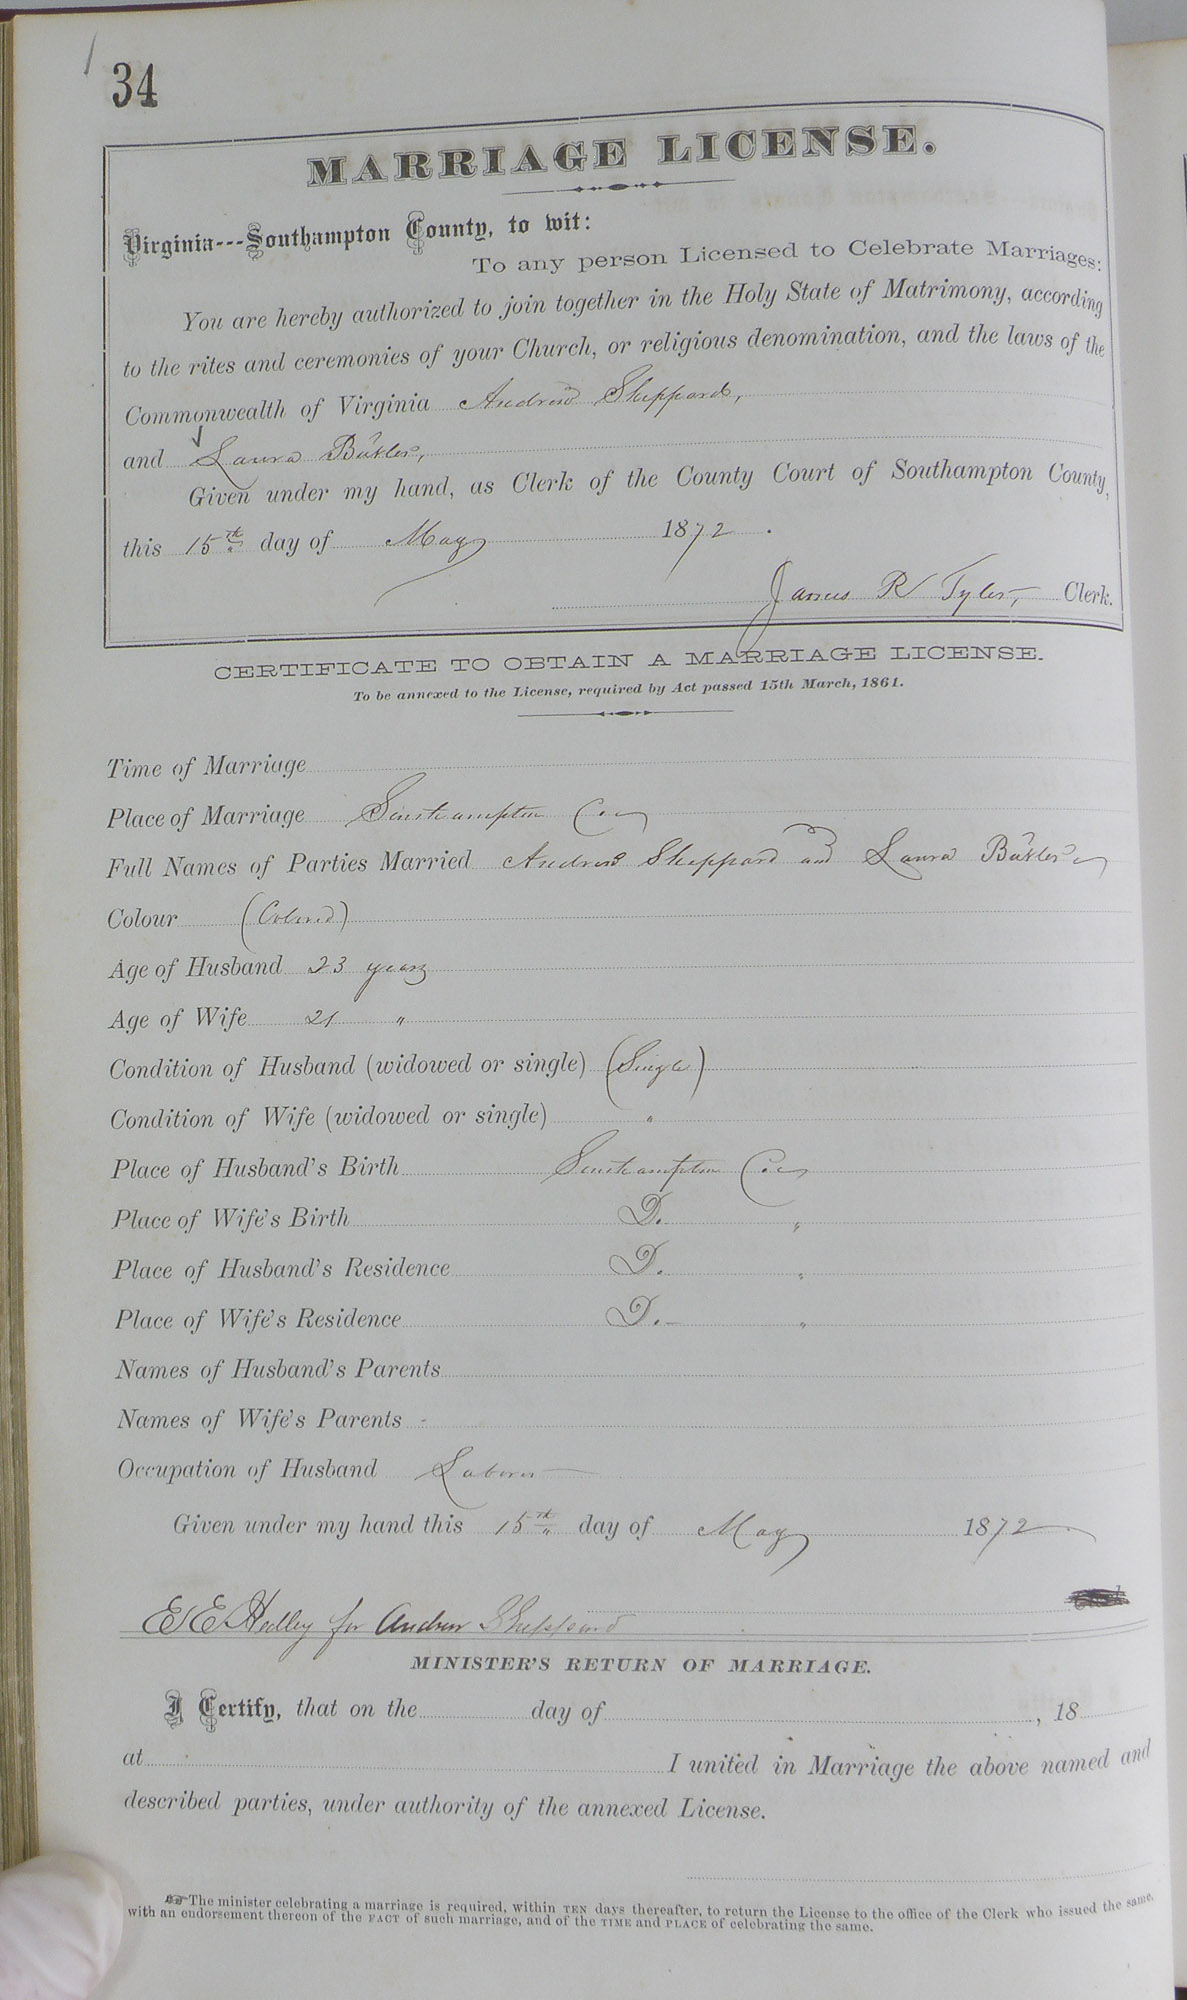 34
MARRIAGE LICENSE.
Virginia---Southampton County, to wit:
To any person Licensed to Celebrate Marriages:
You are hereby authorized to join together in the Holy State of Matrimony, according
to the rites and ceremonies of your Church, or religious denomination, and the laws of the
Commonwealth of Virginia Andrew Sheppard,
and Laura Butler,
Given under my hand, as Clerk of the County Court of Southampton County,
this 15th day of May 1872.
James R Tyler, Clerk.
CERTIFICATE TO OBTAIN A MARRIAGE LICENSE.
To be annexed to the License, required by Act passed 15th March, 1861.
Time of Marriage
Place of Marriage Southampton Co
Full Names of Parties Married Andrew Sheppard and Laura Butler
Colour (Colored)
Age of Husband 23 years
Age of Wife 21 "
Condition of Husband (widowed or single) (Single)
Condition of Wife (widowed or single) "
Place of Husband's Birth Southampton Co
Place of Wife's Birth D. "
Place of Husband's Residence D. "
Place of Wife's Residence D. "
Names of Husband's Parents
Names of Wife's Parents -
Occupation of Husband Laborer
Given under my hand this 15th day of May 1872
E E Hedley for Andrew Sheppard
MINISTER'S RETURN OF MARRIAGE.
I Certify, that on the day of , 18
at I united in Marriage the above named and
described parties, under authority of the annexed License.
☞ The minister celebrating a marriage is required, within TEN days thereafter, to return the License to the office of the Clerk who issued the same,
with an endorsement thereon of the FACT of such marriage, and of the TIME and PLACE of celebrating the same.